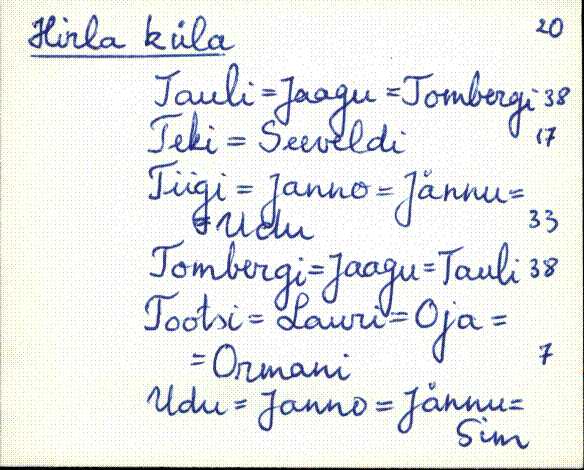 Hirla küla 20
Tauli = Jaagu = Tombergi 38
Teki = Seeveldi 17
Tiigi = Janno = Jånnu =
= Udu 33
Tombergi = Jaagu = Tauli 38
Tootsi = Lauri = Oja =
= Ormani 7
Udu = Janno = Jånnu =
Sim